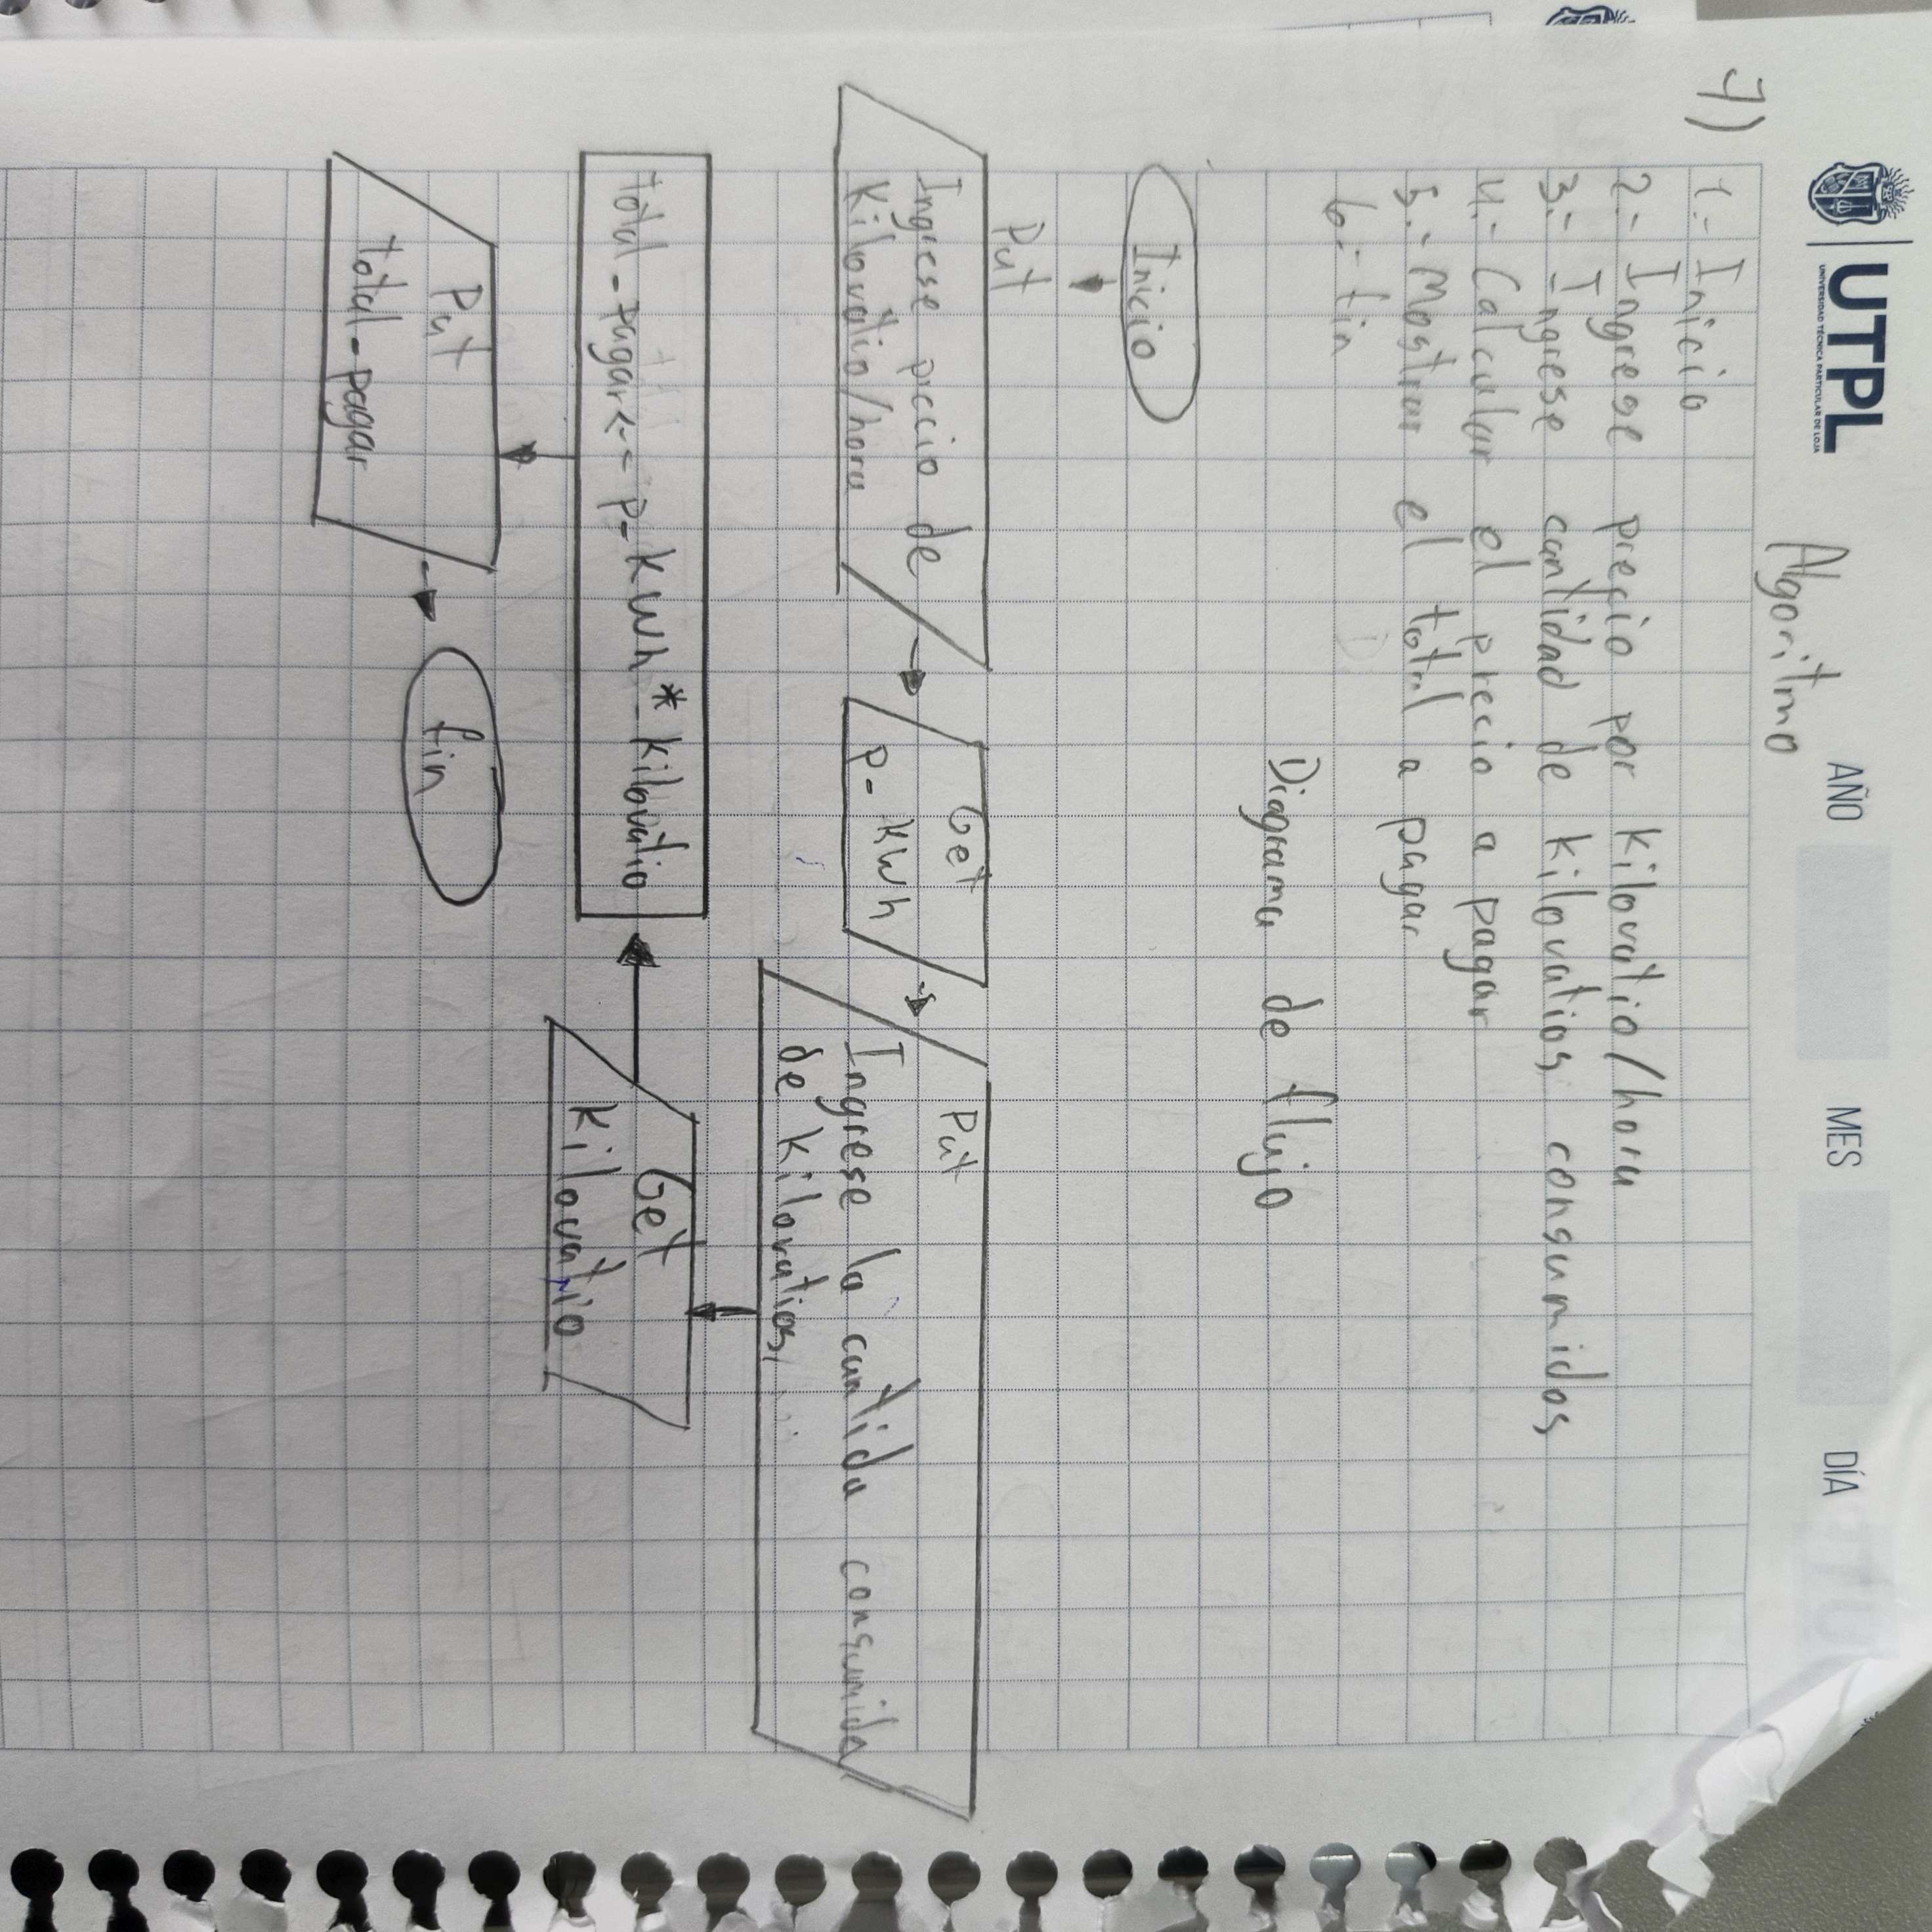 UTPL
UNIVERSIDAD TÉCNICA PARTICULAR DE LOJA
AÑO MES DÍA
Algoritmo
7)
1.- Inicio
2.- Ingrese precio por kilovatio/hora
3.- Ingrese cantidad de kilovatios consumidos
4.- Calcular el precio a pagar
5.- Mostrar el total a pagar
6.- fin
Diagrama de flujo
Inicio
Put
Ingrese precio de
kilovatio/hora
Get
p-kwh
Put
Ingrese la cantida consumida
de kilovatios
Get
kilovatio
total-pagar <-- p-kwh * kilovatio
Put
total-pagar
fin